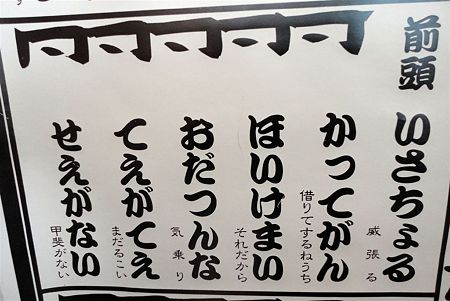 前頭
いさちょる
威張る
かってがん
借りてするねうち
ほいけまい
それだから
おだつんな
気乗り
てえがてえ
まだるこい
せえがない
甲斐がない
同同同同同